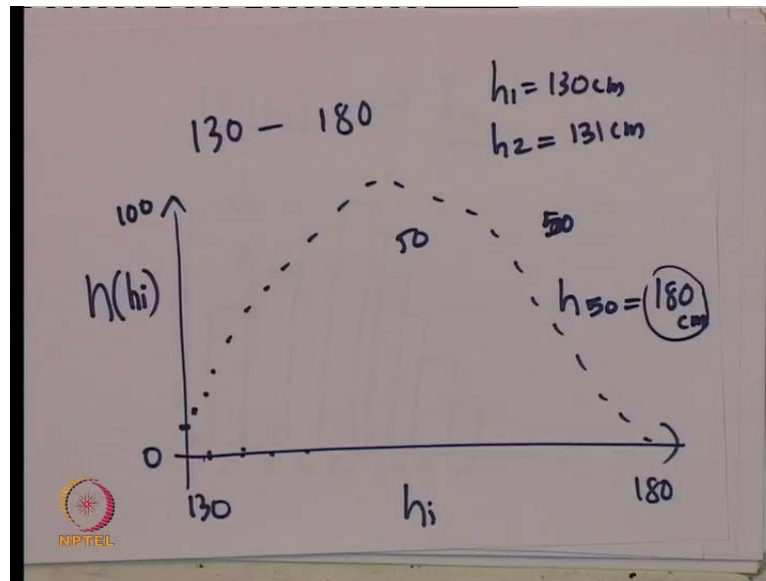 130 - 180
h1 = 130 cm
h2 = 131 cm
100
50
50
n(hi)
h50 = 180 cm
0
130
hi
180
NPTEL